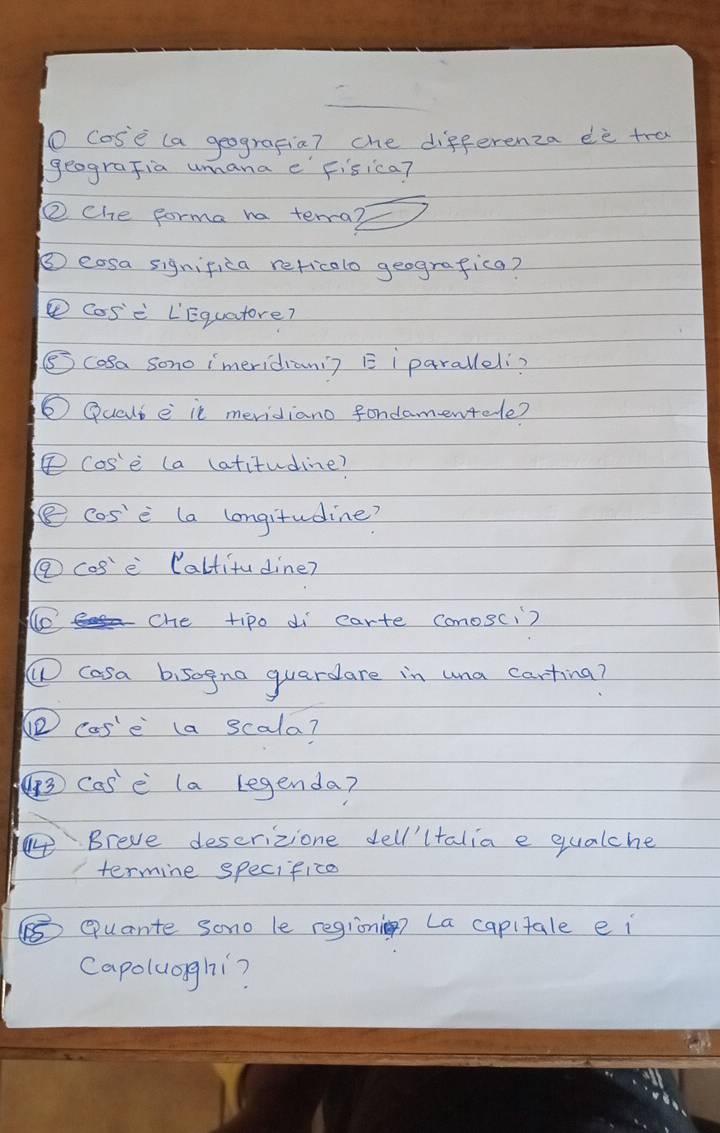 ① Cos'è la geografia? Che differenza c'è tra
geografia umana e fisica?
② Che forma ha terra?
③ cosa significa reticolo geografico?
④ Cos'è L'Equatore?
⑤ cosa sono i meridiani? E i paralleli?
⑥ Qual è il meridiano fondamentale?
⑦ Cos'è la latitudine?
⑧ Cos'è la longitudine?
⑨ cos'è l'altitudine?
⑩ Che tipo di carte conosci?
⑪ Cosa bisogna guardare in una cartina?
⑫ cos'è la scala?
⑬ Cos'è la legenda?
⑭ Breve descrizione dell'Italia e qualche
termine specifico
⑮ Quante sono le regioni? La capitale e i
Capoluoghi?